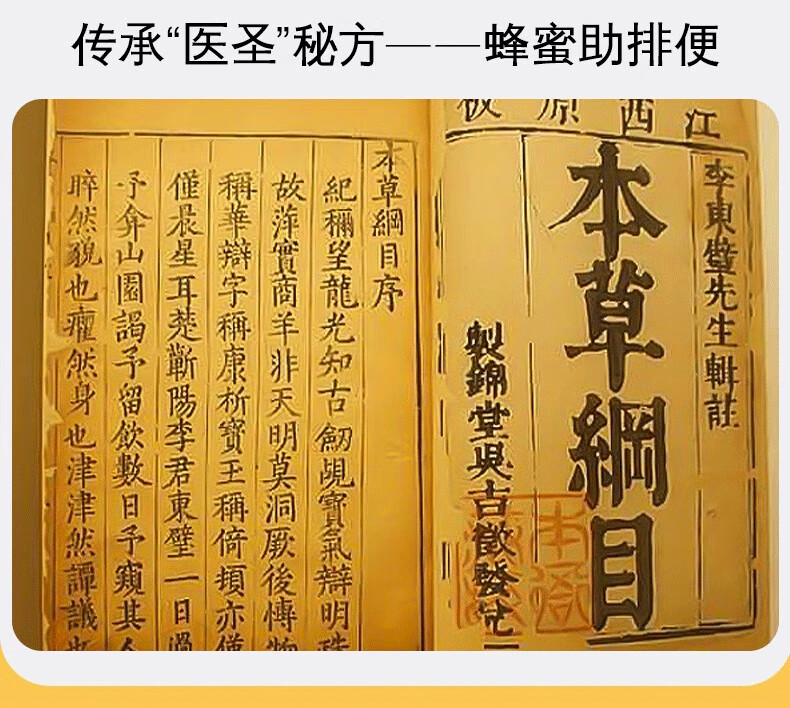 传承“医圣”秘方——蜂蜜助排便
江西原板
李東璧先生輯註
本草綱目
製錦堂吳吉徵發兌
本草綱目序
紀稱望龍光知古劒覘寶氣辯明珠
故萍實商羊非天明莫洞厥後博物
稱華辯字稱康析寶玉稱倚頓亦僅
僅晨星耳楚蘄陽李君東璧一日過
予弇山園謁予留飲數日予窺其人
睟然貌也癯然身也津津然譚議也